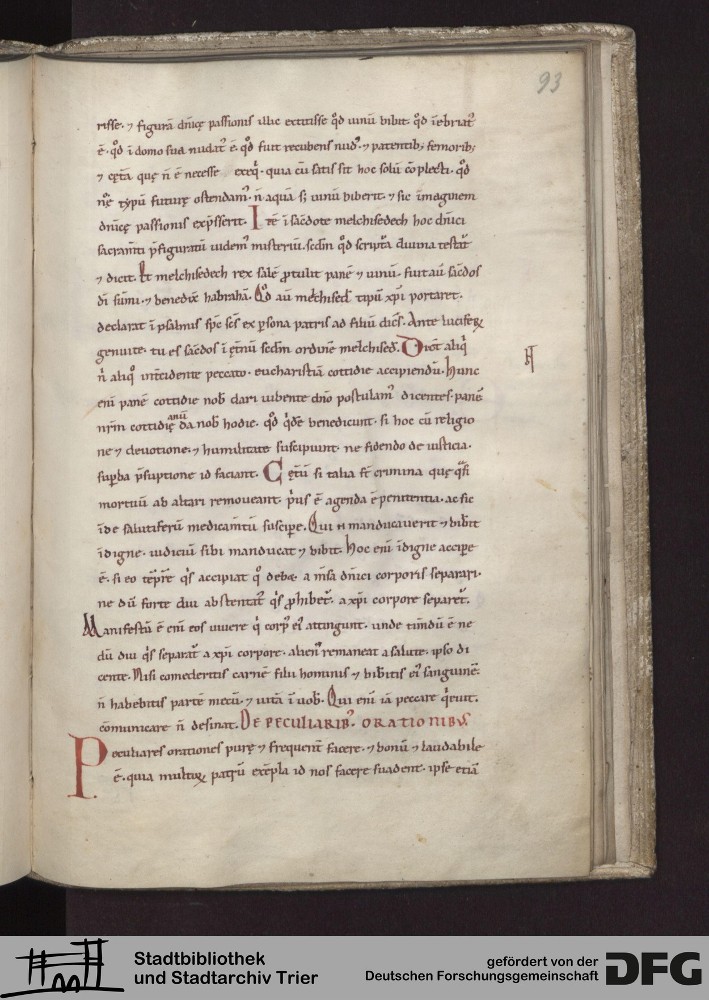 93
risse. ⁊ figurā dn̄icę passionis illic extitisse qd̄ uinū bibit. qd̄ iēbriatˀ
ē. qd̄ ī domo sua nudatˀ ē. qd̄ fuit recubens nudˀ. ⁊ patentib; femorib;
⁊ cęta quę n̄ ē necesse exeq̇. quia cū satis sit hoc solū cōplecti. qd̄
nōe typū futurę ostendamˀ. n̄ aquā s; uinū biberit. ⁊ sic imaginem
dn̄icę passionis exp̄sserit. Itē ī sacdote melchisedech hoc dn̄ici
sacram̄ti p̄figuratū uidemˀ misteriū. scdm̄ qd̄ scriptā diuina testatˀ
⁊ dicit. Et melchisedech rex salē ꝓtulit panē ⁊ uinū. fuit aū sacdos
dī sūmi. ⁊ benedix̄ habrahā. Qd̄ aū melchised̄ tipū xp̄i portaret.
declarat ī psalmis sp̄c sc̄s ex ꝑsona patris ad filiū dic̄s. Ante luciferꝝ
genui te. tu es sacdos ī et̄nū scdm̄ ordinē melchised̄. Dicit aliq̇
n̄ aliqo int̄cidente peccato. eucharistiā cottidie accipiendū. hunc
enī panē cottidie nob̄ dari iubente dn̄o postulamˀ dicentes. panē
nr̄m cottidię anū da nob̄ hodie. qd̄ qͥde benedicunt. si hoc cū religio
ne ⁊ deuotione. ⁊ humilitate suscipiunt. ne fidendo de iusticia.
suꝑba p̄suptione id faciant. Cet̄ū si talia s̄t crimina quę qͣsi
mortuū ab altari remoueant. pͥus ē agenda ē penitentia. ac sic
īde salutiferū medicam̄tū suscipe. Qui n̄ manducauerit ⁊ bib̄it
īdigne. iudiciū sibi manducat ⁊ bibit. hoc enī īdigne accipe
ē. si eo tēpr̄e qͥs accipiat qo debet a m̄sa dn̄ici corporis separari.
ne dū forte diu abstentatˀ qͥs ꝓhibetˀ. a xp̄i corpore separetˀ.
Manifestū ē enī eos uiuere qͥ corpˀ eiˀ attingunt. unde tim̄dū ē ne
dū diu qͥs separatˀ a xp̄i corpore. alienˀ remaneat a salute. ipso di
cente. Nisi comederitis carnē filii hominis ⁊ bib̄itis eiˀ sanguinē.
n̄ habebitis partē mecū. ⁊ uitā ī uob̄. Qui enī iā peccare qͥeuit.
cōmunicare n̄ desinat. DE PECULIARIBˀ. ORATIONIBUS
Peculiares orationes purę ⁊ frequent̄ facere. ⁊ bonū ⁊ laudabile
ē. quia multoꝝ patrū exēpla id nos facere suadent. ipse etiā
Stadtbibliothek
und Stadtarchiv Trier
gefördert von der
Deutschen Forschungsgemeinschaft
DFG